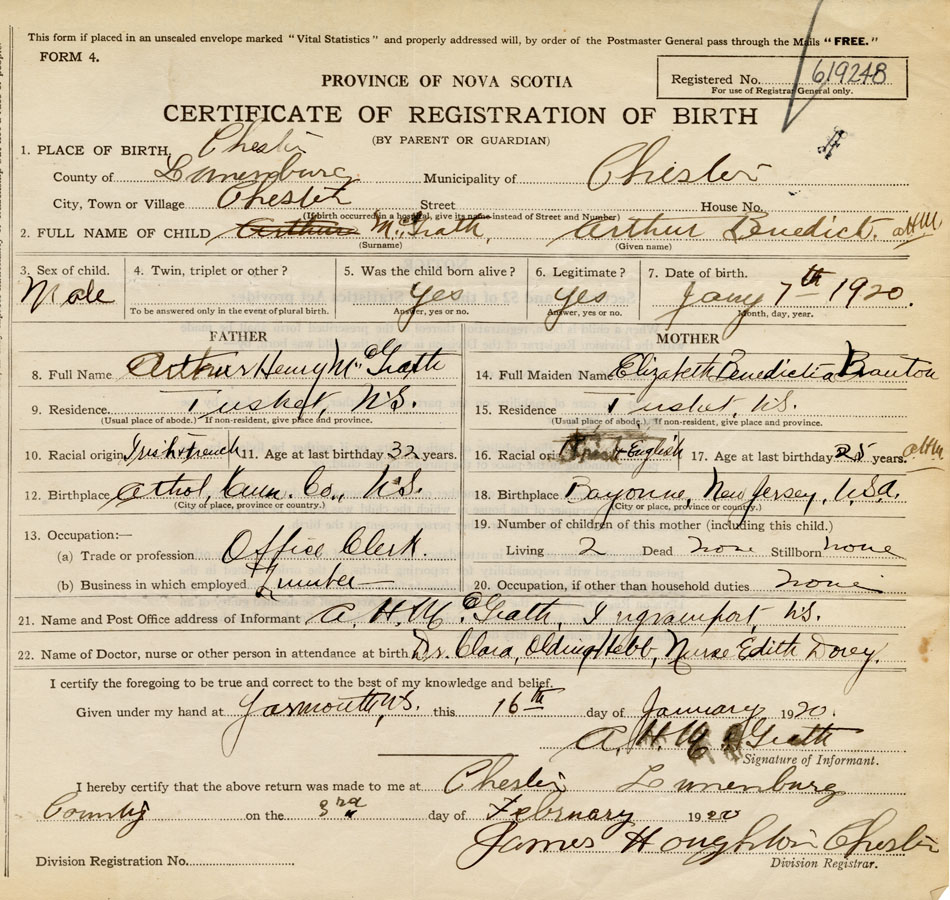 This form if placed in an unsealed envelope marked "Vital Statistics" and properly addressed will, by order of the Postmaster General pass through the Mails "FREE."
FORM 4.
PROVINCE OF NOVA SCOTIA
Registered No. 619248
For use of Registrar General only.
CERTIFICATE OF REGISTRATION OF BIRTH
(BY PARENT OR GUARDIAN)
1. PLACE OF BIRTH, Chester
County of Lunenburg Municipality of Chester
City, Town or Village Chester Street House No.
(If birth occurred in a hospital, give its name instead of Street and Number)
2. FULL NAME OF CHILD Arthur McGrath, Arthur Benedict. AHM
(Surname) (Given name)
3. Sex of child. 4. Twin, triplet or other? 5. Was the child born alive? 6. Legitimate? 7. Date of birth.
Male Yes Yes Jany 7th 1920.
To be answered only in the event of plural birth. Answer, yes or no. Answer, yes or no. Month, day, year.
FATHER MOTHER
8. Full Name Arthur Henry McGrath 14. Full Maiden Name Elizabeth Benedictia Branton
9. Residence Tusket, N.S. 15. Residence Tusket, N.S.
(Usual place of abode.) If non-resident, give place and province. (Usual place of abode.) If non-resident, give place and province.
10. Racial origin Irish & French 11. Age at last birthday 32 years. 16. Racial or English 17. Age at last birthday 25 years. AHM
12. Birthplace Athol, Cum. Co., N.S. 18. Birthplace Bayonne, New Jersey, U.S.A.
(City or place, province or country.) (City or place, province or country.)
13. Occupation:— 19. Number of children of this mother (including this child.)
(a) Trade or profession Office Clerk. Living 2 Dead none Stillborn none
(b) Business in which employed Lumber 20. Occupation, if other than household duties none
21. Name and Post Office address of Informant A. H. McGrath, Ingramport, N.S.
22. Name of Doctor, nurse or other person in attendance at birth Dr. Clara, Olding Hebb, Nurse Edith Dorey.
I certify the foregoing to be true and correct to the best of my knowledge and belief.
Given under my hand at Yarmouth, N.S. this 16th day of January 1920.
A. H. McGrath
Signature of Informant.
I hereby certify that the above return was made to me at Chester Lunenburg
County on the 3rd day of February 1920
James Houghton Chester
Division Registration No. Division Registrar.